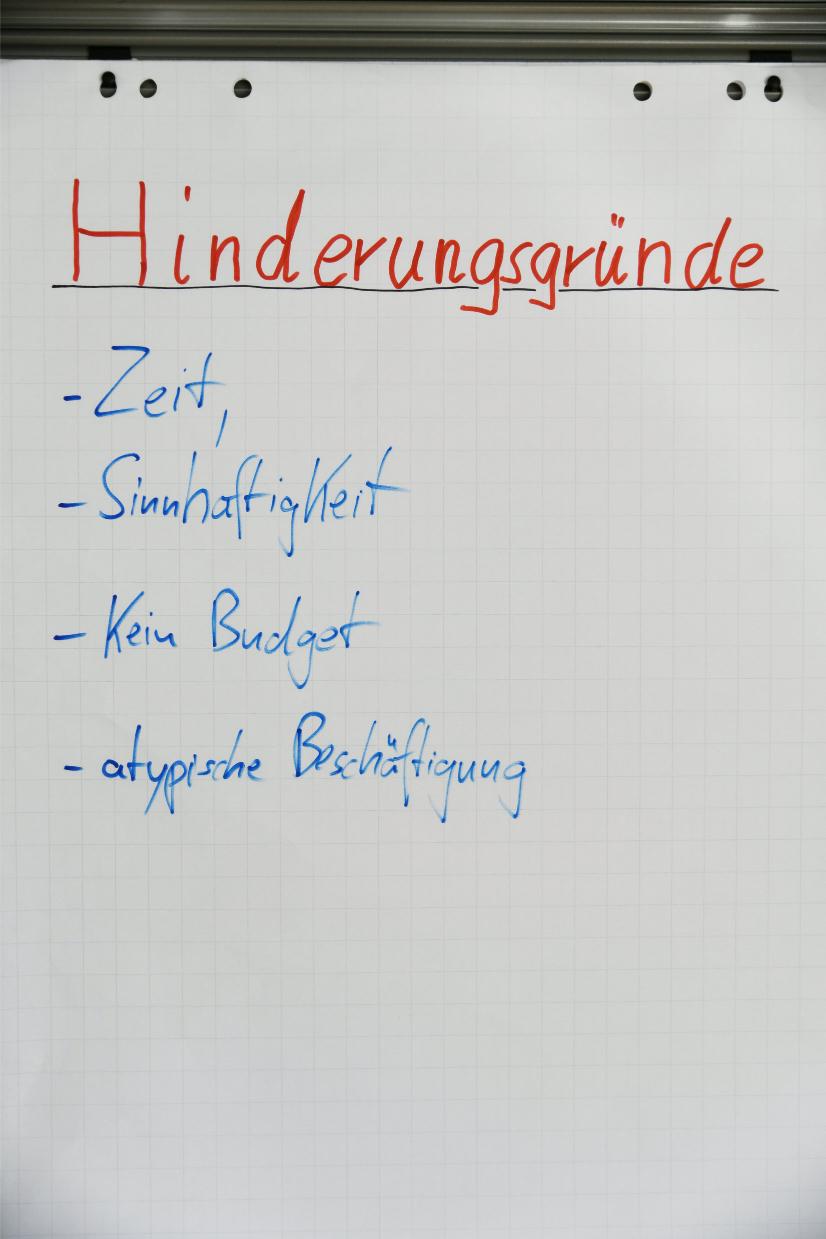 Hinderungsgründe
- Zeit,
- Sinnhaftigkeit
- Kein Budget
- atypische Beschäftigung